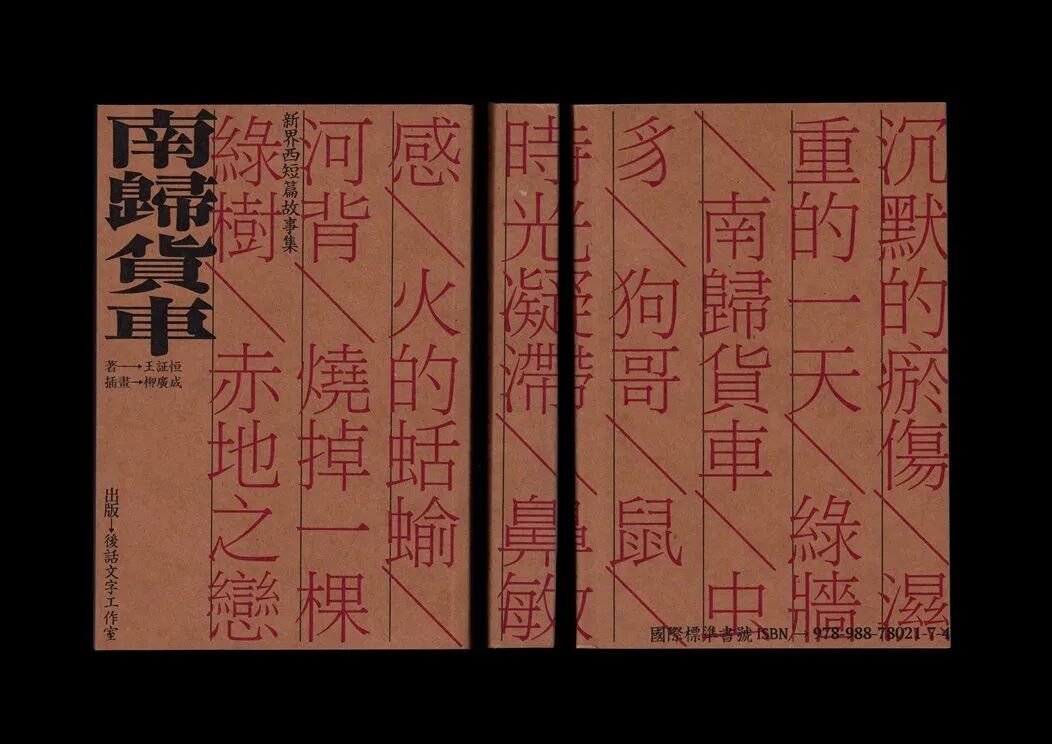 沉默的瘀傷＼濕
重的一天＼綠牆
＼南歸貨車＼中
豸＼狗哥＼鼠＼
時光凝滯＼鼻敏
感＼火的蛞蝓＼
河背＼燒掉一棵
綠樹＼赤地之戀
新界西短篇故事集
南歸貨車
著→王証恒
插畫→柳廣成
出版→後話文字工作室
國際標準書號ISBN→978-988-78021-7-4